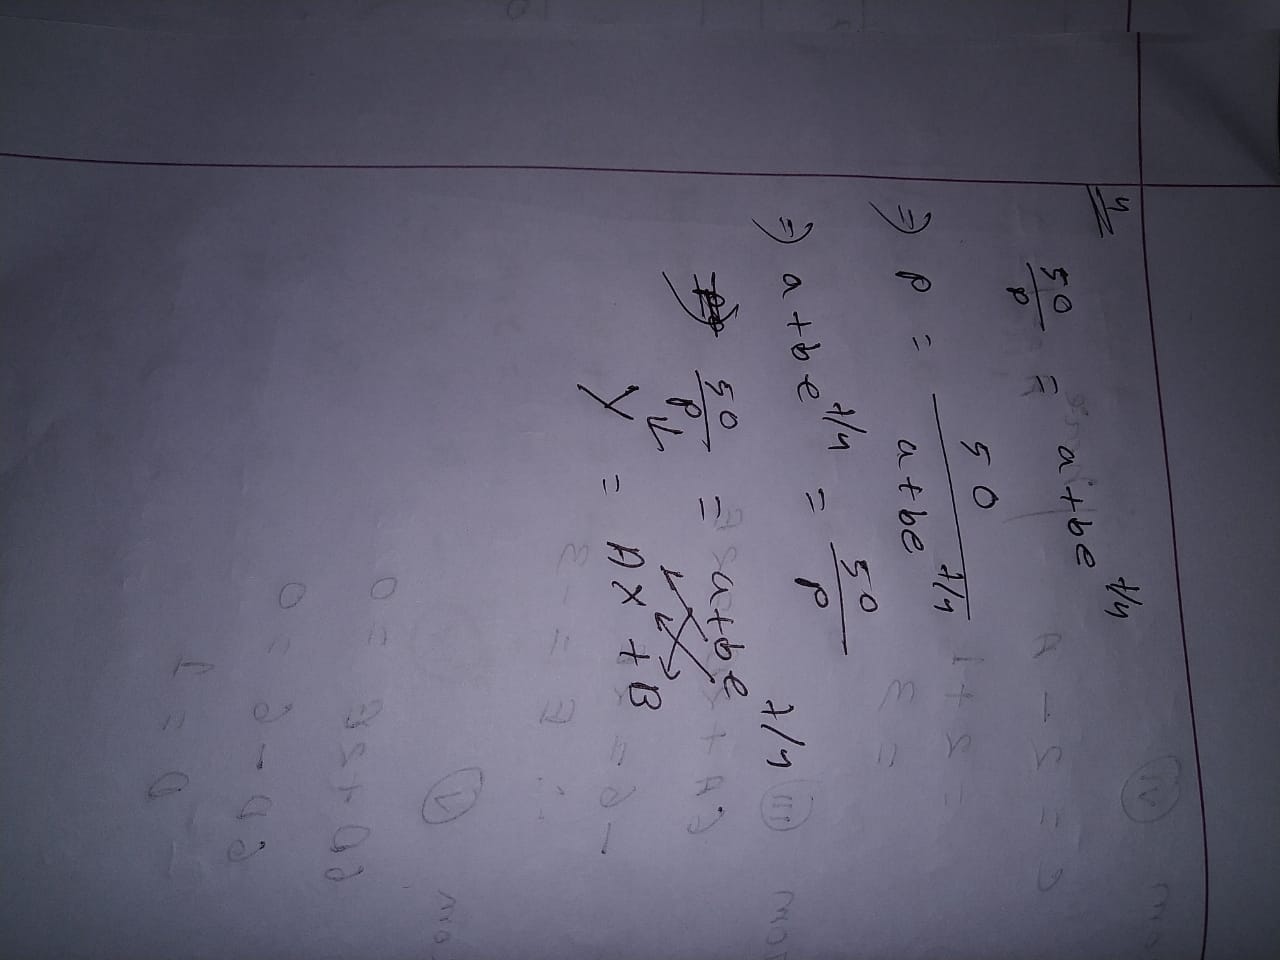 4
50/P = a+be^t/4
⇒ P = 50/a+be^t/4
⇒ a+be^t/4 = 50/P
50/P = a+be^t/4
↓
Y = AX+B